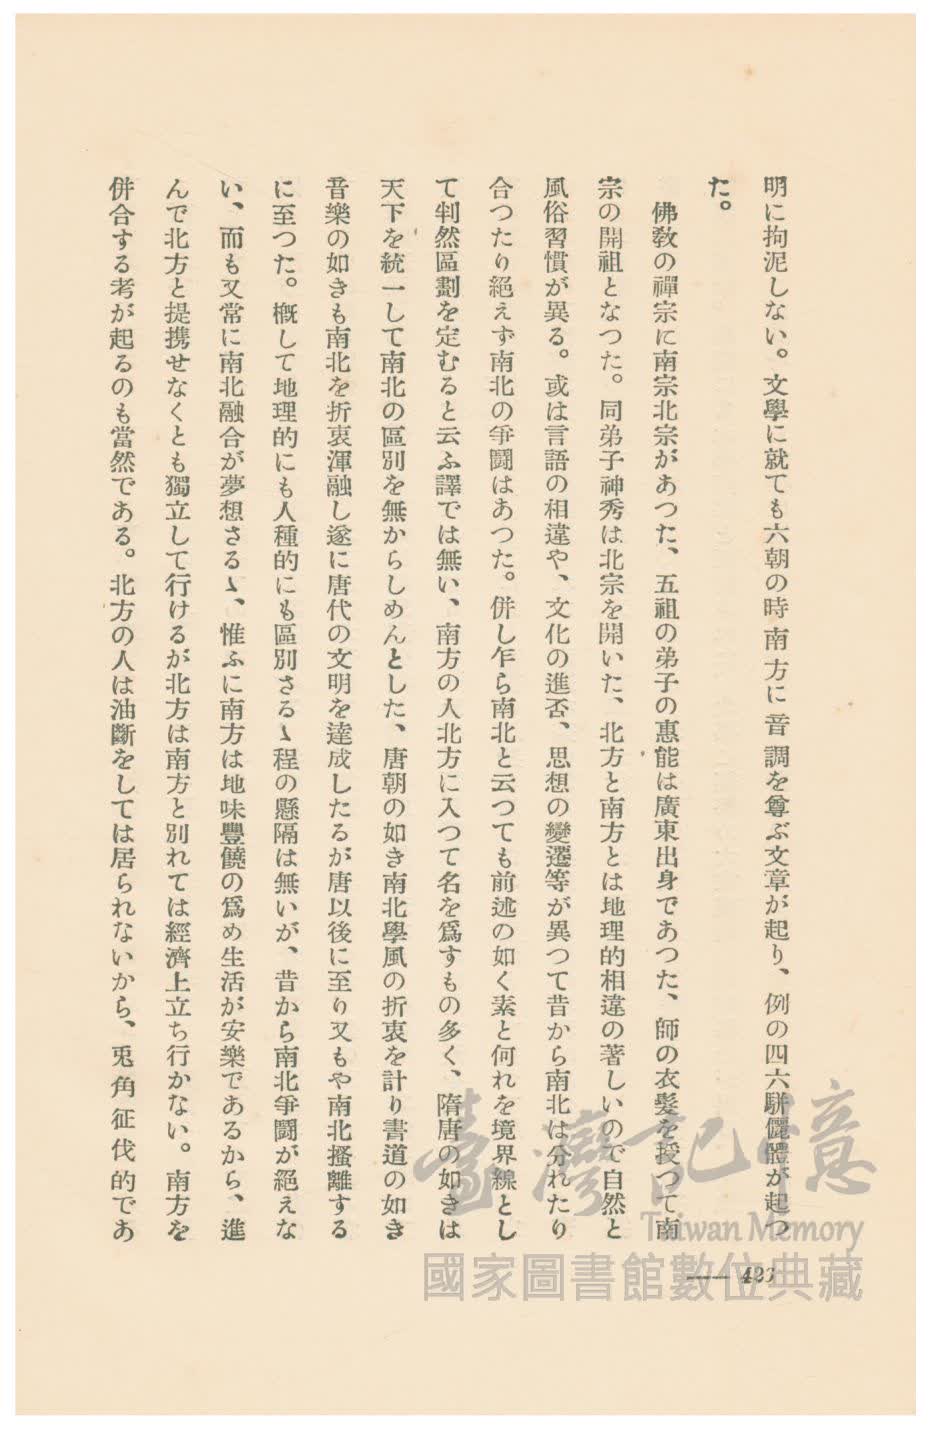 明に拘泥しない。文學に就ても六朝の時南方に音調を尊ぶ文章が起り、例の四六駢儷體が起つ
た。
佛敎の禪宗に南宗北宗があつた、五祖の弟子の惠能は廣東出身であつた、師の衣髮を授つて南
宗の開祖となつた。同弟子神秀は北宗を開いた、北方と南方とは地理的相違の著しいので自然と
風俗習慣が異る。或は言語の相違や、文化の進否、思想の變遷等が異つて昔から南北は分れたり
合つたり絕えず南北の爭鬪はあつた。併し乍ら南北と云つても前述の如く素と何れを境界線とし
て判然區劃を定むると云ふ譯では無い、南方の人北方に入つて名を爲すもの多く、隋唐の如きは
天下を統一して南北の區別を無からしめんとした、唐朝の如き南北學風の折衷を計り書道の如き
音樂の如きも南北を折衷渾融し遂に唐代の文明を達成したるが唐以後に至り又もや南北搔離する
に至つた。槪して地理的にも人種的にも區別さるゝ程の懸隔は無いが、昔から南北爭鬪が絕えな
い、而も又常に南北融合が夢想さるゝ、惟ふに南方は地味豐饒の爲め生活が安樂であるから、進
んで北方と提携せなくとも獨立して行けるが北方は南方と別れては經濟上立ち行かない。南方を
併合する考が起るのも當然である。北方の人は油斷をしては居られないから、兎角征伐的であ
臺灣記憶
Taiwan Memory
國家圖書館數位典藏